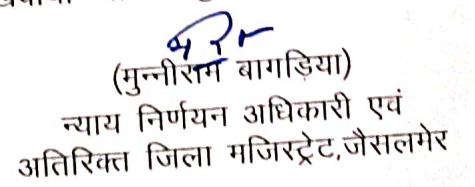 (मुन्नीराम बागड़िया)
न्याय निर्णयन अधिकारी एवं
अतिरिक्त जिला मजिस्ट्रेट,जैसलमेर